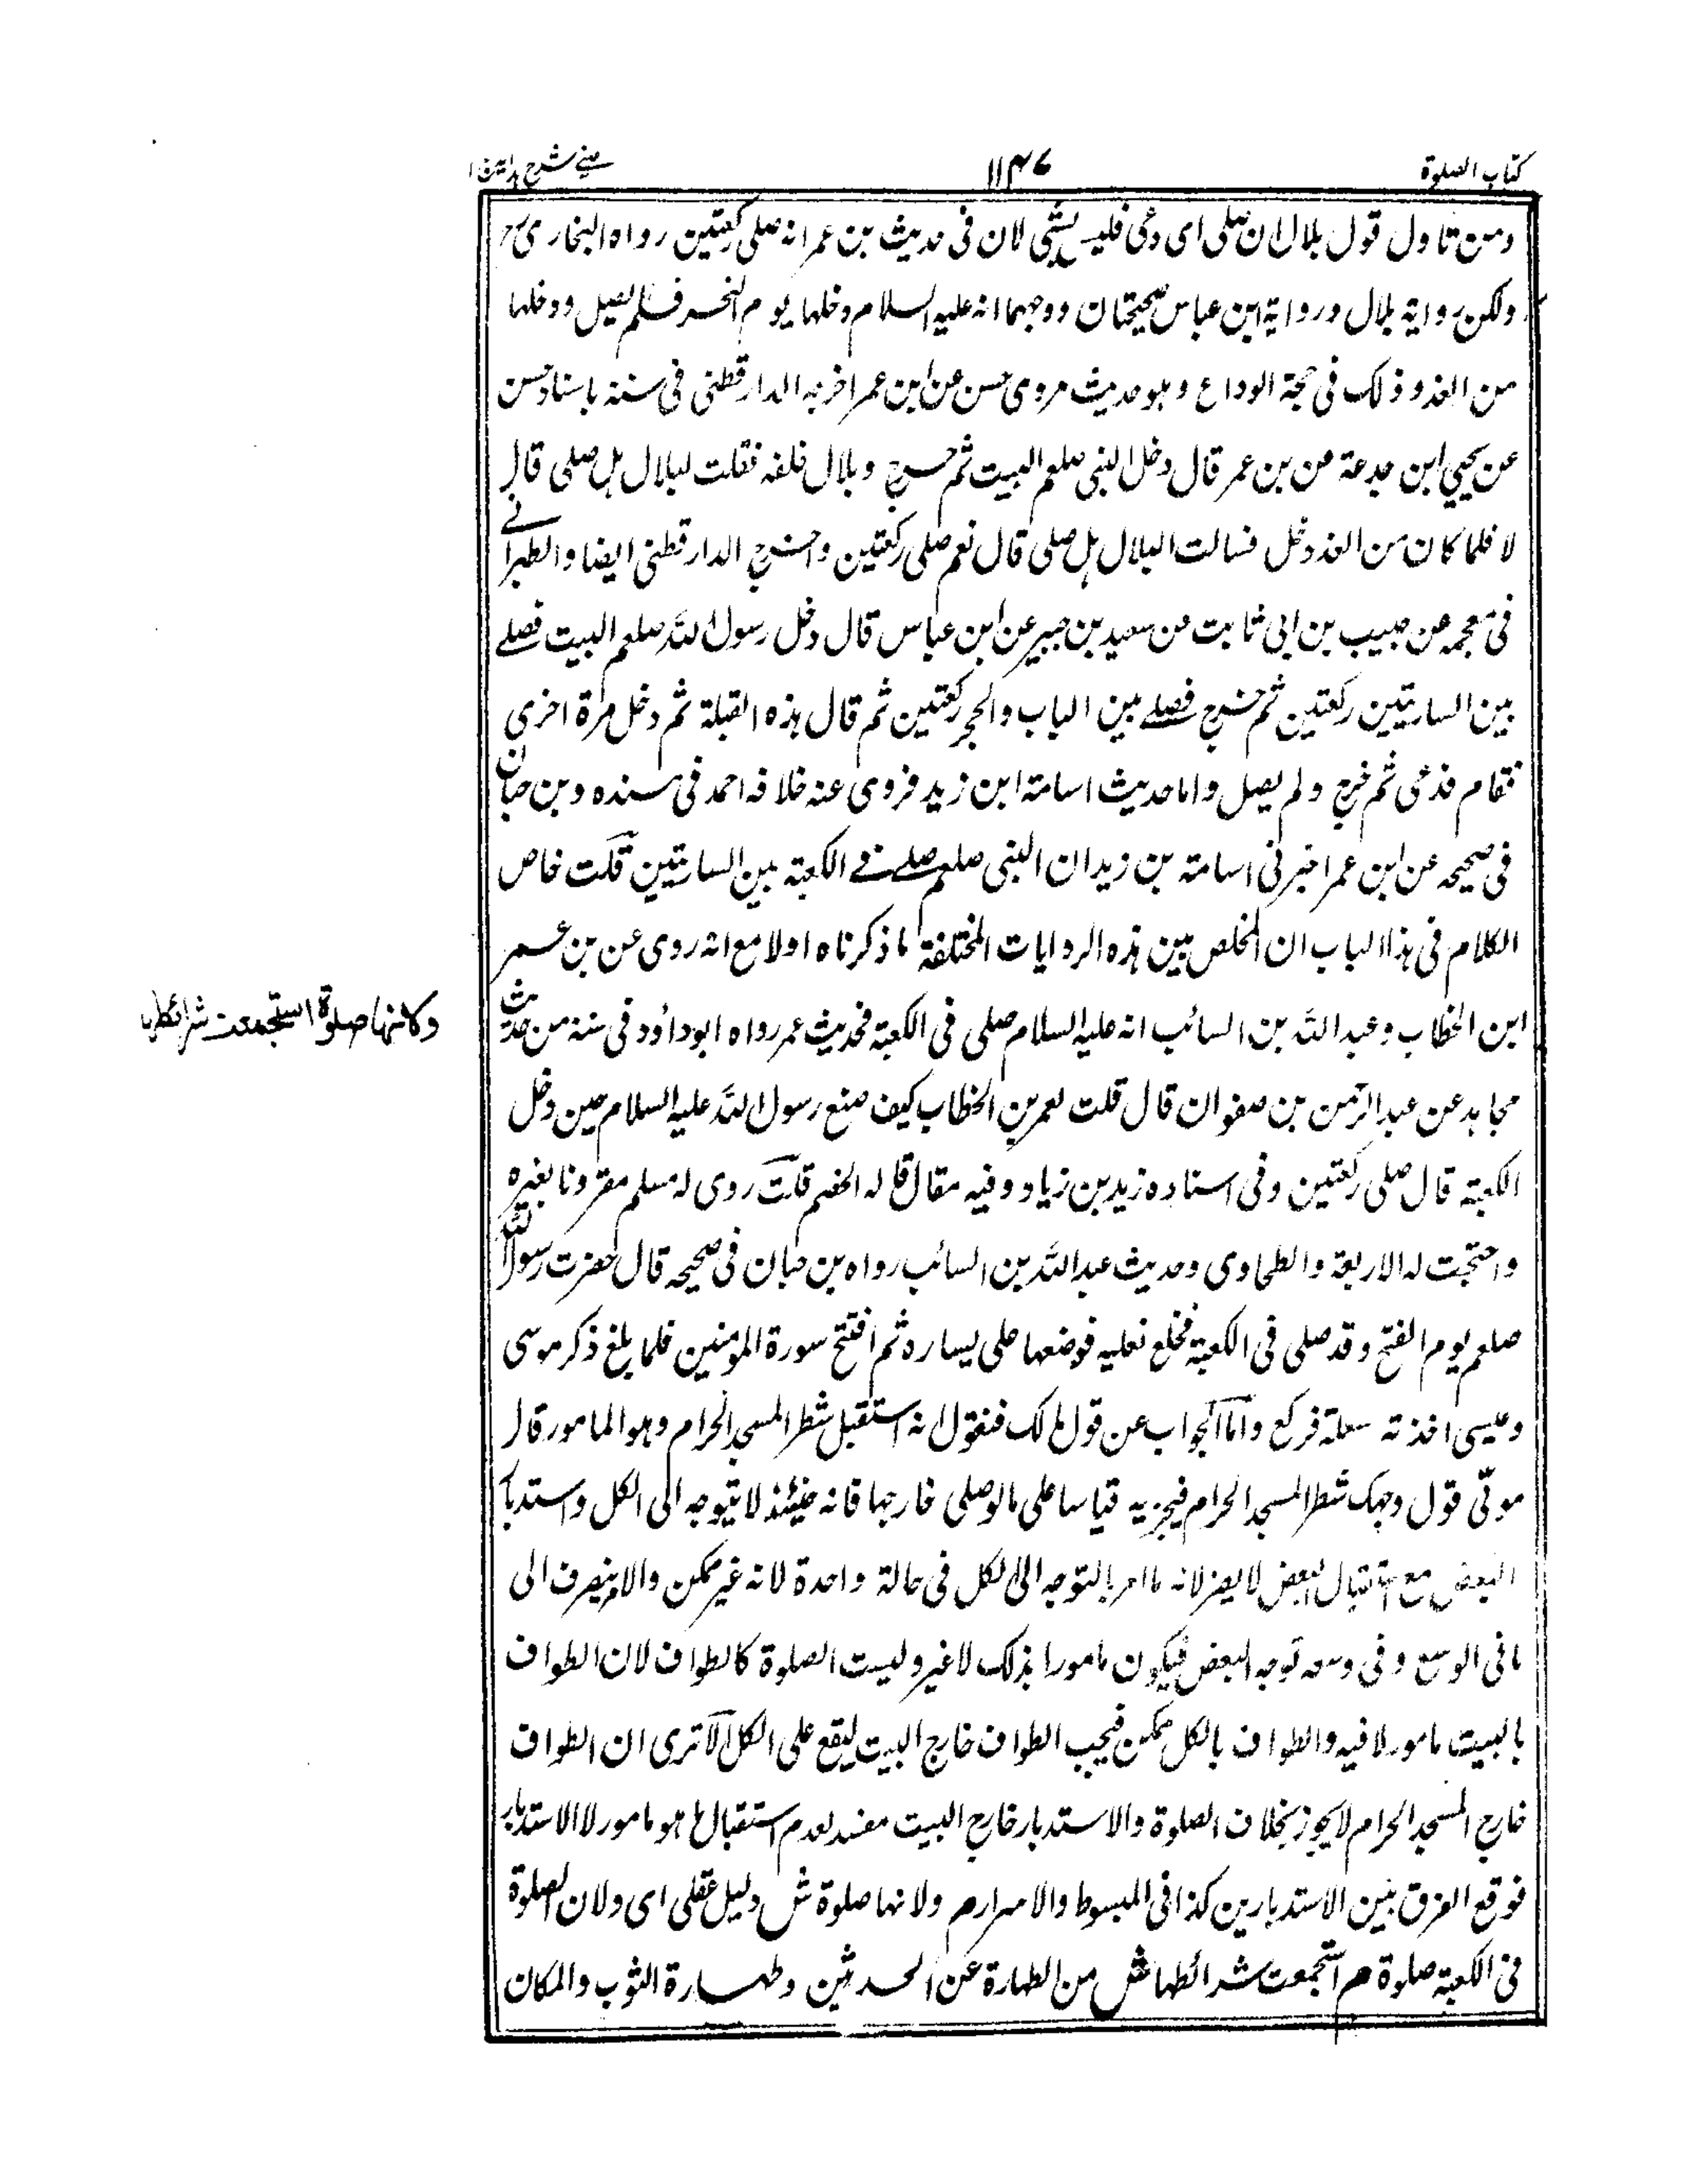 كتاب الصلوة
۱۱۴۷
عينى شرح هداية ج ۱
ومن تاول قول بلال ان صلى اى دعى فليس بشئ لان فى حديث بن عمر انه صلى ركعتين رواه البخارى
ولكن رواية بلال ورواية ابن عباس صحيحتان ووجههما انه عليه السلام دخلها يوم النحر فلم يصل ودخلها
من الغد وذلك فى حجة الوداع وهو حديث مروى حسن عن ابن عمر اخرجه الدارقطنى فى سننه باسناد حسن
عن يحيى ابن جدعة عن بن عمر قال دخل النبى صلعم البيت ثم خرج وبلال خلفه فقلت لبلال هل صلى قال
لا فلما كان من الغد دخل فسالت البلال هل صلى قال نعم صلى ركعتين واخرج الدارقطنى ايضا والطبرانے
فى معجمه عن حبيب بن ابى ثابت عن سعيد بن جبير عن ابن عباس قال دخل رسول الله صلعم البيت فصلے
بين الساريتين ركعتين ثم خرج فصلے بين الباب والحجر ركعتين ثم قال هذه القبلة ثم دخل مرة اخرى
فقام فدعى ثم خرج ولم يصل واما حديث اسامة ابن زيد فروى عنه خلافه احمد فى مسنده وبن حبان
فى صحيحه عن ابن عمر اخبرنى اسامة بن زيد ان النبى صلعم صلے فے الكعبة بين الساريتين قلت خاص
الكلام فى هذا الباب ان المخلص بين هذه الروايات المختلفة ما ذكرناه اولا مع انه روى عن بن عمر
ابن الخطاب وعبد الله بن السائب انه عليه السلام صلى فى الكعبة فحديث عمر رواه ابوداؤد فى سننه من حديث
مجاهد عن عبد الرحمن بن صفوان قال قلت لعمر بن الخطاب كيف صنع رسول الله عليه السلام حين دخل
الكعبة قال صلى ركعتين وفى اسناده زيد بن زياد وفيه مقال قاله الخصم قلت روى له مسلم مقرونا بغيره
واحتجت له الاربعة والطحاوى وحديث عبد الله بن السائب رواه بن حبان فى صحيحه قال حضرت رسول الله
صلعم يوم الفتح وقد صلى فى الكعبة فخلع نعليه فوضعها على يساره ثم افتتح سورة المؤمنين فلما بلغ ذكر موسى
وعيسى اخذته سعلة فركع واما الجواب عن قول مالك فنقول انه استقبل شطر المسجد الحرام وهو المامور قال
مولى قول وجهك شطر المسجد الحرام فيجزيه قياسا على مالو صلى خارجها فانه حينئذ لا يتوجه الى الكل واستدبا
البعض مع استقبال البعض لا يضر لانه ما امر بالتوجه الى الكل فى حالة واحدة لانه غير ممكن والامر ينصرف الى
ما فى الوسع وفى وسعه توجه البعض فيكون مامورا بذلك لا غير وليست الصلوة كالطواف لان الطواف
بالبيت مامور لا فيه والطواف بالكل ممكن فيجب الطواف خارج البيت ليقع على الكل الا ترى ان الطواف
خارج المسجد الحرام لا يجوز بخلاف الصلوة والاستدبار خارج البيت مفسد لعدم استقبال ما هو مامور لا الاستدبار
فوقع الفرق بين الاستدبارين كذا فى المبسوط والاسرار م ولانها صلوة ش دليل عقلى اى ولان الصلوة
فى الكعبة صلوة م استجمعت شرائطها ش من الطهارة عن الحدثين وطهارة الثوب والمكان
وكانها صلوة استجمعت شرائطها